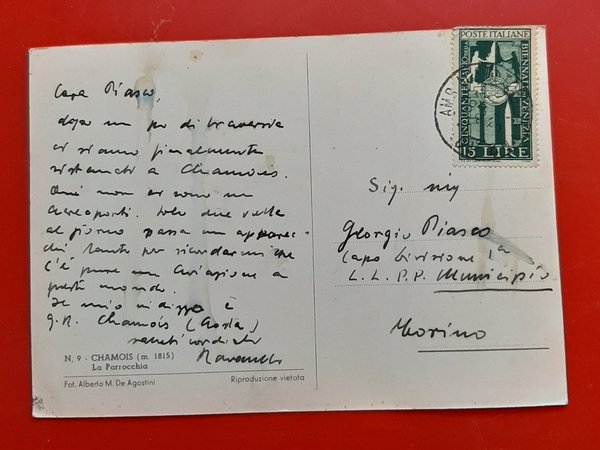 Caro Piasco,
dopo un po' di traversie
ci siamo finalmente
sistemati a Chamois.
Qui non ci sono un
aeroporti. Solo due volte
al giorno passa un apparec-
chio tanto per ricordarmi che
c'è pure un'aviazione a
questo mondo.
Il mio indirizzo è
g.R. Chamois (Aosta)
saluti cordiali
N. 9 - CHAMOIS (m. 1815)
La Parrocchia
Fot. Alberto M. De Agostini
Riproduzione vietata
POSTE ITALIANE
CINQUANTENARIO DELLA
BIENNALE DI VENEZIA
15 LIRE
Sig. Ing
Georgio Piasco
Capo Divisione 1a
L.L.P.P. Municipio
Torino